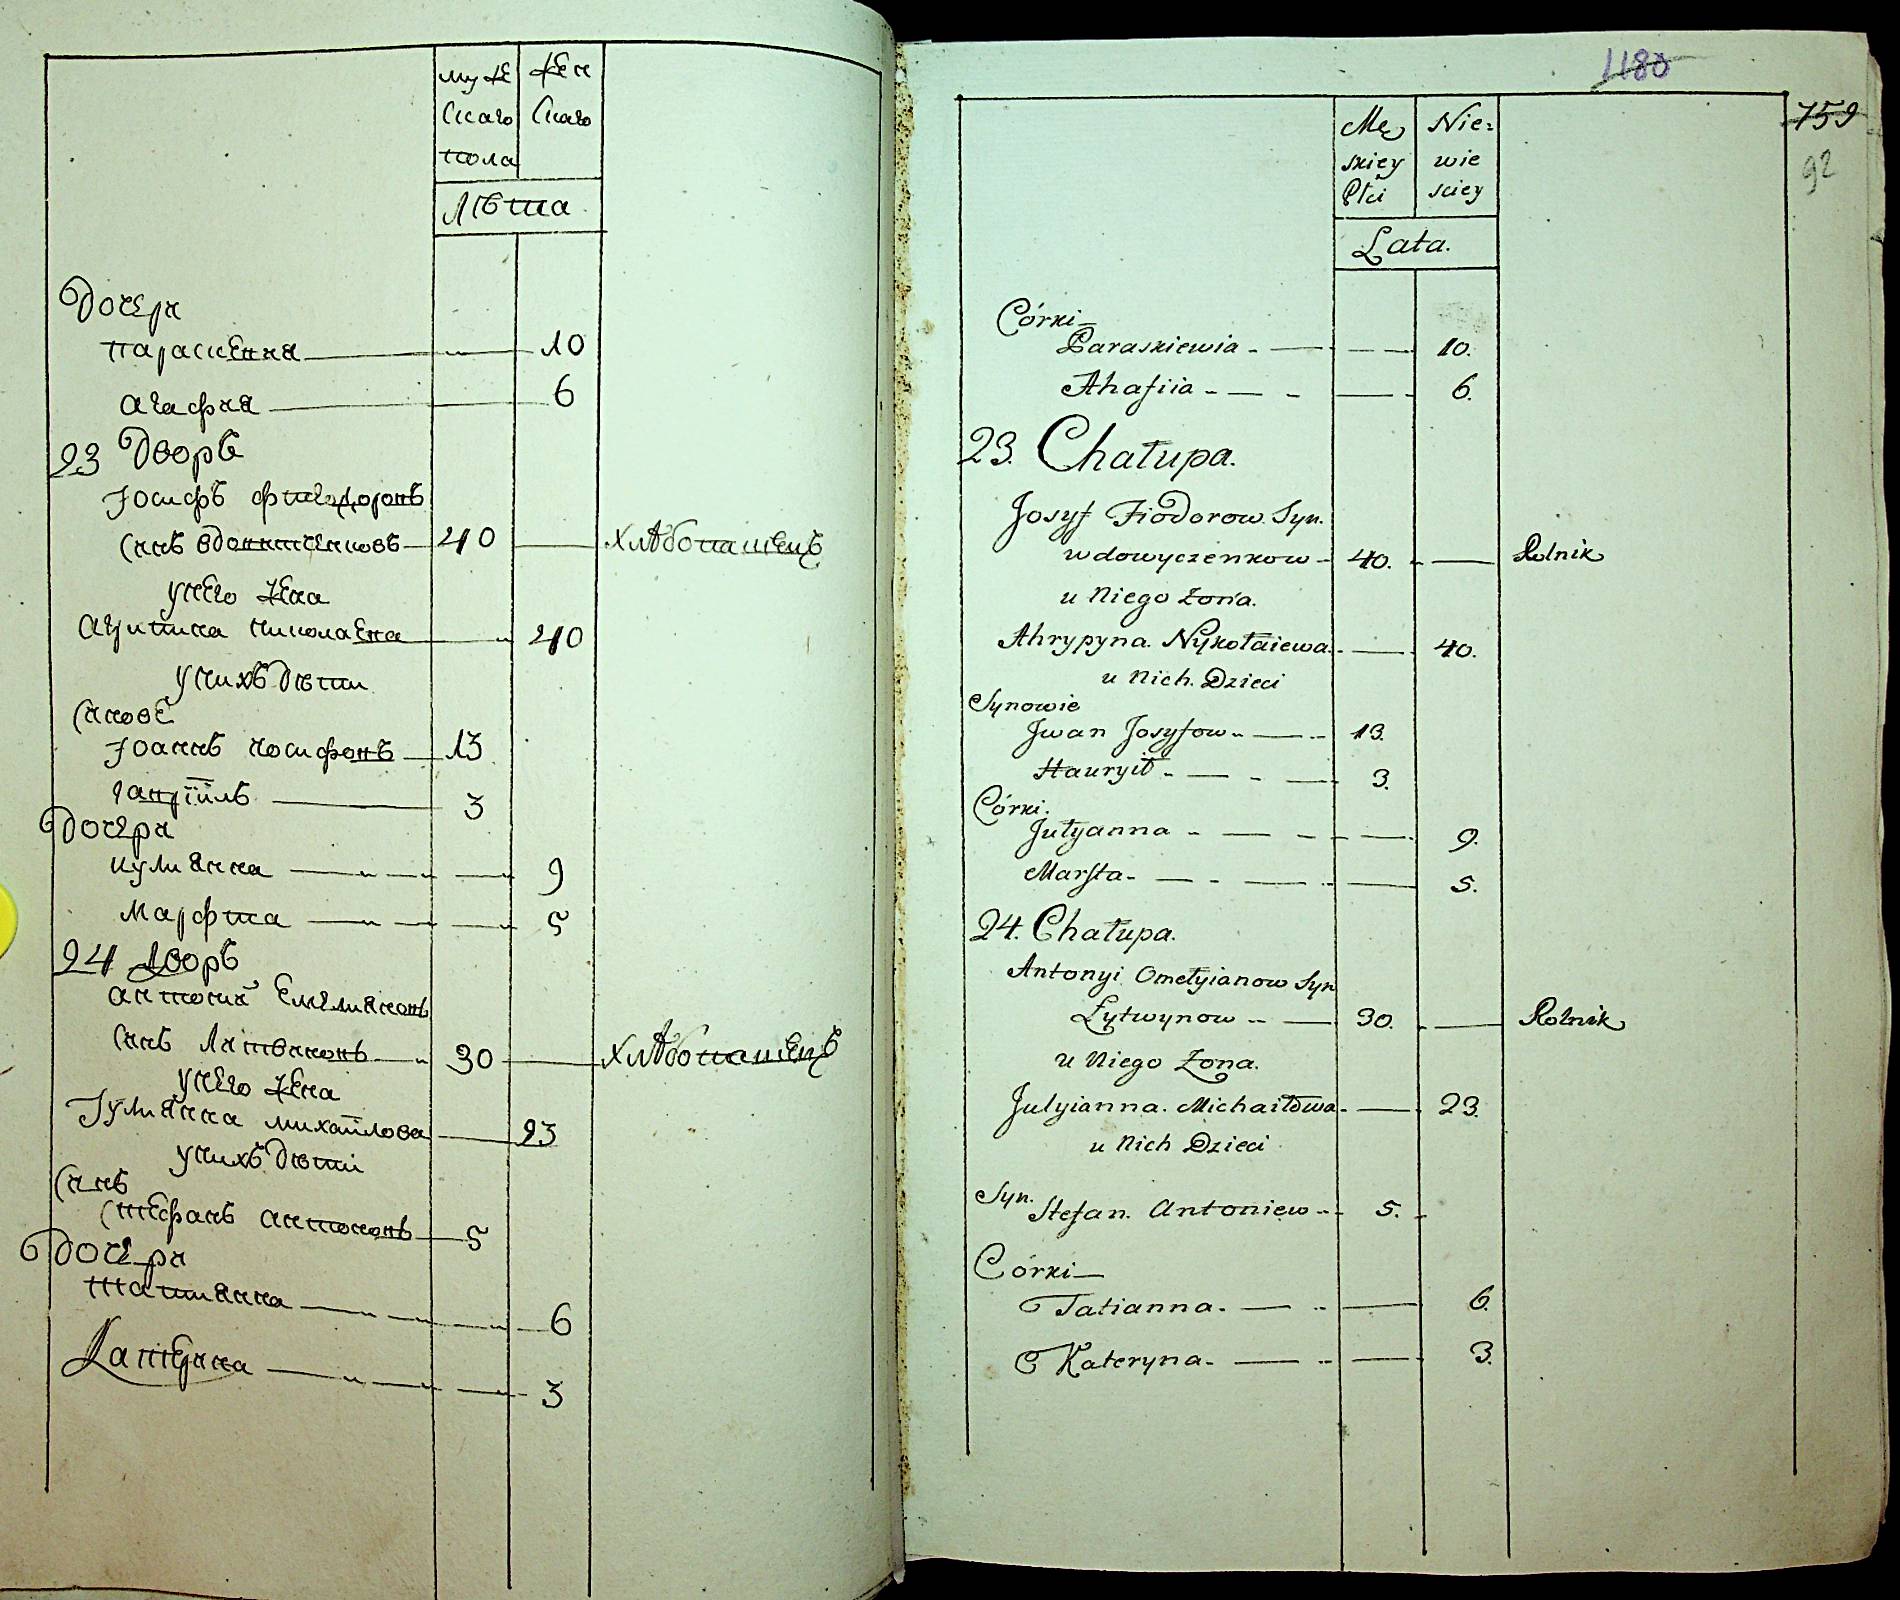 муже
скаго
пола
жен
скаго
лѣта
Дочери
параскевия 10
агафия 6
23 Дворъ
Іосифъ фтеодоровъ
синъ вдовитченковъ 40 хлѣбопашецъ
унего жена
агрипина николаева 40
унихъ дѣти
синове
Іоаннъ иосифовъ 13
гавріилъ 3
Дочери
иулиянна 9
Марфта 5
24 Дворъ
антоний Емелияновъ
синъ Литвиновъ 30 хлѣбопашецъ
унего жена
Іулиянна михайлова 23
унихъ дѣти
синъ
стефанъ антоновъ 5
Дочери
татиянна 6
Катерина 3
1180
759
92
Mę
skiey
Płci
Nie=
wie
sciey
Lata.
Córki
Paraskiewia 10.
Ahafiia 6.
23. Chałupa.
Josyf Fiodorow Syn.
wdowyczenkow 40. Rolnik
u Niego Żona.
Ahrypyna. Nykołaiewa 40.
u Nich. Dzieci
Synowie
Jwan Josyfow 13.
Hauryił 3.
Córki.
Jułyanna 9.
Marfta 5.
24. Chałupa.
Antonyi Omełyianow Syn
Łytwynow 30. Rolnik
u Niego Żona.
Julyianna. Michaiłowa 23.
u Nich Dzieci
Syn.
Stefan. Antoniew 5.
Córki
Tatianna. 6.
Kateryna. 3.